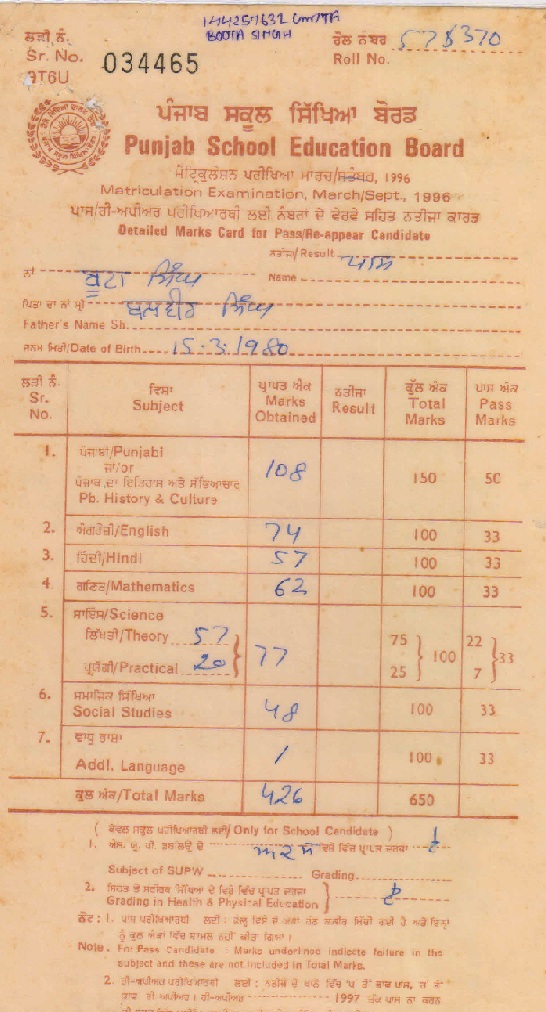 144257632
BOOTA SINGH
ਲੜੀ ਨੰ.
Sr. No. 034465
9T6U
ਰੋਲ ਨੰਬਰ
Roll No.
ਪੰਜਾਬ ਸਕੂਲ ਸਿੱਖਿਆ ਬੋਰਡ
Punjab School Education Board
ਮੈਟ੍ਰਿਕੁਲੇਸ਼ਨ ਪਰੀਖਿਆ ਮਾਰਚ/ਸਤੰਬਰ, 1996
Matriculation Examination, March/Sept., 1996
ਪਾਸ/ਰੀ-ਅਪੀਅਰ ਪਰੀਖਿਆਰਥੀ ਲਈ ਨੰਬਰਾਂ ਦੇ ਵੇਰਵੇ ਸਹਿਤ ਨਤੀਜਾ ਕਾਰਡ
Detailed Marks Card for Pass/Re-appear Candidate
ਨਤੀਜਾ/Result ਪਾਸ
ਨਾਂ ਬੂਟਾ ਸਿੰਘ Name
ਪਿਤਾ ਦਾ ਨਾਂ ਸ੍ਰੀ ਬਲਵੀਰ ਸਿੰਘ
Father's Name Sh.
ਜਨਮ ਮਿਤੀ/Date of Birth 15-3-1980
ਲੜੀ ਨੰ. Sr. No. ਵਿਸ਼ਾ Subject ਪ੍ਰਾਪਤ ਅੰਕ Marks Obtained ਨਤੀਜਾ Result ਕੁੱਲ ਅੰਕ Total Marks ਪਾਸ ਅੰਕ Pass Marks
1. ਪੰਜਾਬੀ/Punjabi
ਜਾਂ/or 108 150 50
ਪੰਜਾਬ ਦਾ ਇਤਿਹਾਸ ਅਤੇ ਸੱਭਿਆਚਾਰ
Pb. History & Culture
2. ਅੰਗਰੇਜ਼ੀ/English 74 100 33
3. ਹਿੰਦੀ/Hindi 57 100 33
4. ਗਣਿਤ/Mathematics 62 100 33
5. ਸਾਇੰਸ/Science
ਲਿਖਤੀ/Theory 57 75 22
77 100 33
ਪ੍ਰਯੋਗੀ/Practical 20 25 7
6. ਸਮਾਜਿਕ ਸਿੱਖਿਆ
Social Studies 48 100 33
7. ਵਾਧੂ ਭਾਸ਼ਾ
Addl. Language / 100 33
ਕੁਲ ਅੰਕ/Total Marks 426 650
( ਕੇਵਲ ਸਕੂਲ ਪਰੀਖਿਆਰਥੀ ਲਈ/ Only for School Candidate )
1. ਐਸ. ਯੂ. ਪੀ. ਡਬਲਯੂ ਦੇ ਵਿਸ਼ੇ ਵਿੱਚ ਪ੍ਰਾਪਤ ਦਰਜਾ
Subject of SUPW Grading
2. ਸਿਹਤ ਤੇ ਸਰੀਰਕ ਸਿੱਖਿਆ ਦੇ ਵਿਸ਼ੇ ਵਿੱਚ ਪ੍ਰਾਪਤ ਦਰਜਾ
Grading in Health & Physical Education
ਨੋਟ: 1. ਪਾਸ ਪਰੀਖਿਆਰਥੀ ਲਈ :
Note. For Pass Candidate : Marks underlined indicate failure in the
subject and these are not included in Total Marks.
2. ਰੀ-ਅਪੀਅਰ ਪਰੀਖਿਆਰਥੀ ਲਈ :
1997 ਤੱਕ ਪਾਸ ਨਾ ਕਰਨ